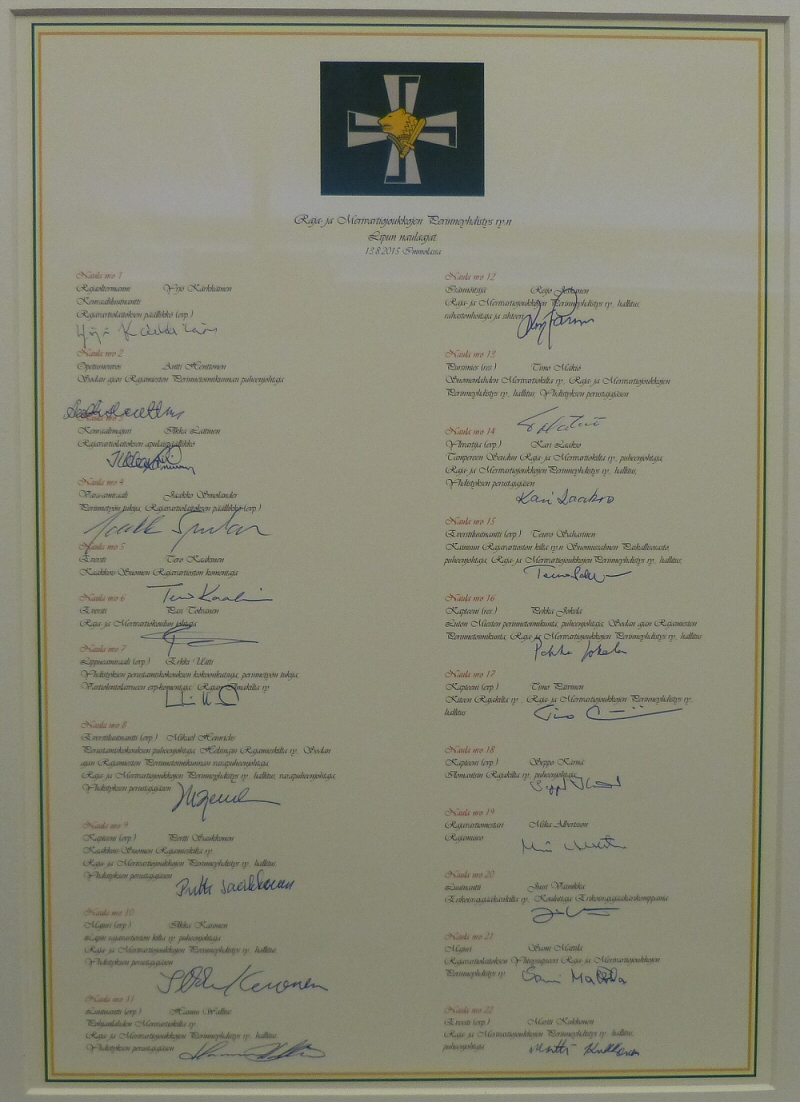 Raja- ja Merivartiojoukkojen Perinneyhdistys ry:n
Lipun naulaajat
13.8.2015 Immolassa
Naula nro 1
Rajaoltermanni Yrjö Karkkainen
Kenraaliluutnantti
Rajavartiolaitoksen päällikkö (evp.)
Naula nro 2
Opetusneuvos Antti Henttonen
Sodan ajan Rajamiesten Perinnetoimikunnan puheenjohtaja
Kenraalimajuri Ilkka Laitinen
Rajavartiolaitoksen apulaispäällikkö
Naula nro 4
Vara-amiraali Jaakko Smolander
Perinnetyön tukija, Rajavartiolaitoksen päällikkö (evp.)
Naula nro 5
Eversti Tero Kaakinen
Kaakkois-Suomen Rajavartioston komentaja
Tero Kaakinen
Naula nro 6
Eversti Pasi Tolvanen
Raja- ja Merivartiokoulun johtaja
Naula nro 7
Lippueamiraali (evp.) Erkki Uitti
Yhdistyksen perustamiskokouksen kokoonkutsuja, perinnetyön tukija,
Vartiolentolaivueen evp-komentaja, Rajan Ilmakilta ry
Naula nro 8
Everstiluutnantti (evp.) Mikael Henrichs
Perustamiskokouksen puheenjohtaja, Helsingin Rajamieskilta ry, Sodan
ajan Rajamiesten Perinnetoimikunnan varapuheenjohtaja,
Raja- ja Merivartiojoukkojen Perinneyhdistys ry, hallitus, varapuheenjohtaja,
Yhdistyksen perustajajäsen
Naula nro 9
Kapteeni (evp.) Pertti Saukkonen
Kaakkois-Suomen Rajamieskilta ry,
Raja- ja Merivartiojoukkojen Perinneyhdistys ry, hallitus,
Yhdistyksen perustajajäsen
Naula nro 10
Majuri (evp.) Ilkka Karonen
Lapin rajavartioston kilta ry puheenjohtaja
Raja- ja Merivartiojoukkojen Perinneyhdistys ry, hallitus,
Yhdistyksen perustajajäsen
Naula nro 11
Luutnantti (evp.) Hannu Wallius
Pohjanlahden Merivartiokilta ry
Raja- ja Merivartiojoukkojen Perinneyhdistys ry, hallitus,
Yhdistyksen perustajajäsen
Naula nro 12
Isännöitsijä Reijo
Raja- ja Merivartiojoukkojen Perinneyhdistys ry, hallitus,
rahastonhoitaja ja sihteeri
Naula nro 13
Pursimies (res.) Timo Mäkiö
Suomenlahden Merivartiokilta ry, Raja- ja Merivartiojoukkojen
Perinneyhdistys ry, hallitus, Yhdistyksen perustajajäsen
Naula nro 14
Ylivartija (evp.) Kari Laakso
Tampereen Seudun Raja- ja Merivartiokilta ry, puheenjohtaja,
Raja- ja Merivartiojoukkojen Perinneyhdistys ry, hallitus,
Yhdistyksen perustajajäsen
Kari Laakso
Naula nro 15
Everstiluutnantti (evp.) Teuvo Sahastinen
Kainuun Rajavartioston kilta ry:n Suomussalmen Paikallisosasto
puheenjohtaja, Raja- ja Merivartiojoukkojen Perinneyhdistys ry, hallitus,
Naula nro 16
Kapteeni (res.) Pekka Jokela
Perinnetoimikunta, Raja- ja Merivartiojoukkojen Perinneyhdistys ry, hallitus
Pekka Jokela
Naula nro 17
Kapteeni (evp.) Timo
Kiteen Rajakilta ry, Raja- ja Merivartiojoukkojen Perinneyhdistys ry,
hallitus
Naula nro 18
Kapteeni (evp.) Seppo Karvä
Ilomantsin Rajakilta ry, puheenjohtaja
Naula nro 19
Rajavartiomestari Mika Albertson
Rajaneuvos
Naula nro 20
Luutnantti Jussi Vatsukka
Erikoisrajajääkärikilta ry, Kouluttaja Erikoisrajajääkärikomppania
Naula nro 21
Majuri Sami Mattila
Rajavartiolaitoksen Yhteysupseeri Raja- ja Merivartiojoukkojen
Perinneyhdistys ry
Sami Mattila
Naula nro 22
Eversti (evp.) Martti Kukkonen
Raja- ja Merivartiojoukkojen Perinneyhdistys ry, hallitus,
puheenjohtaja
Martti Kukkonen